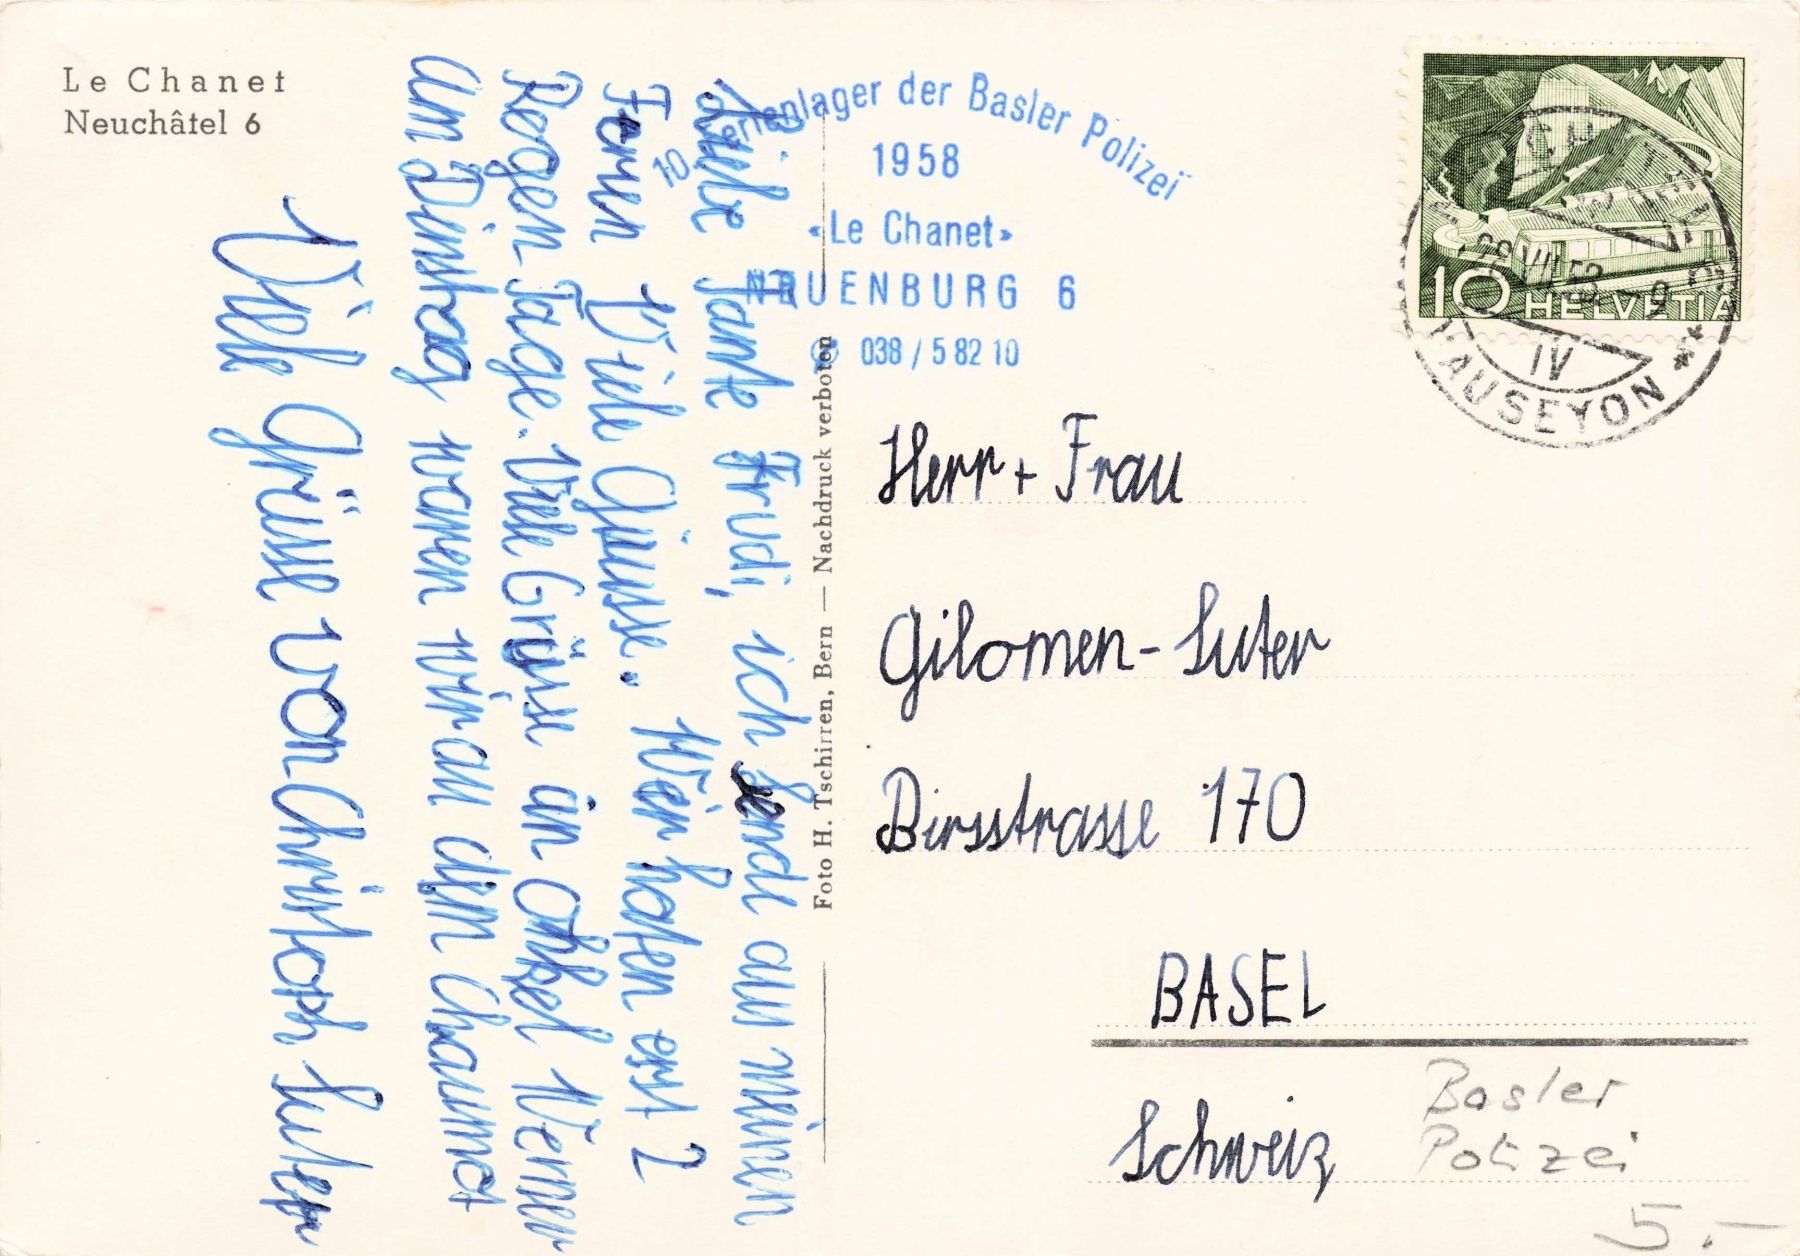 Le Chanet
Neuchâtel 6
10. Ferienlager der Basler Polizei
1958
«Le Chanet»
NEUENBURG 6
038 / 5 82 10
HELVETIA
10
VAUSEYON
IV
Liebe Tante Trudi, ich sende aus meinen
Ferien Viele Grüsse. Wir haten erst 2
Regen-Tage. Viele Grüsse an Onkel Werner
Am Dinstag waren wir au dem Chaumot
Viele Grüsse von Christoph Suter
Foto H. Tschirren, Bern — Nachdruck verboten
Herr + Frau
Gilomen-Suter
Birsstrasse 170
BASEL
Schweiz
Basler
Polizei
5.-